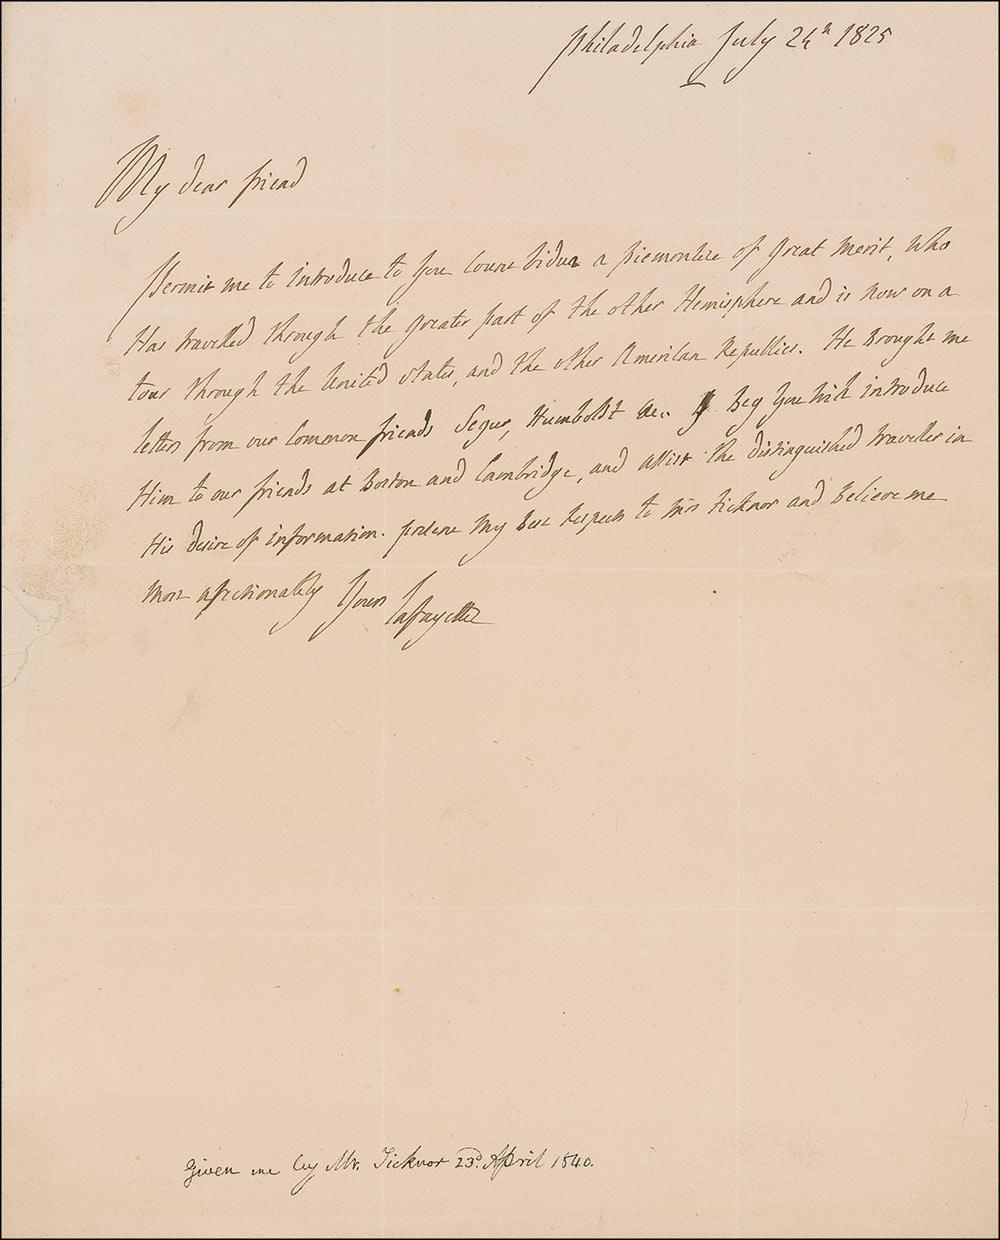 Philadelphia July 24th 1825
My dear friend
Permit me to introduce to you Count Vidua a piemontese of Great Merit, Who
Has travelled through the greater part of the other Hemisphere and is Now on a
tour through the United states, and the other American Republics. He Brought me
letters from our Common friends Segur, Humboldt &c. I Beg You Will introduce
Him to our friends at Boston and Cambridge, and assist the distinguished traveller in
His desire of information. present My Best Respects to Mrs Ticknor and Believe me
Most affectionately Yours
Lafayette
Given me by Mr. Ticknor 23d. April 1840.